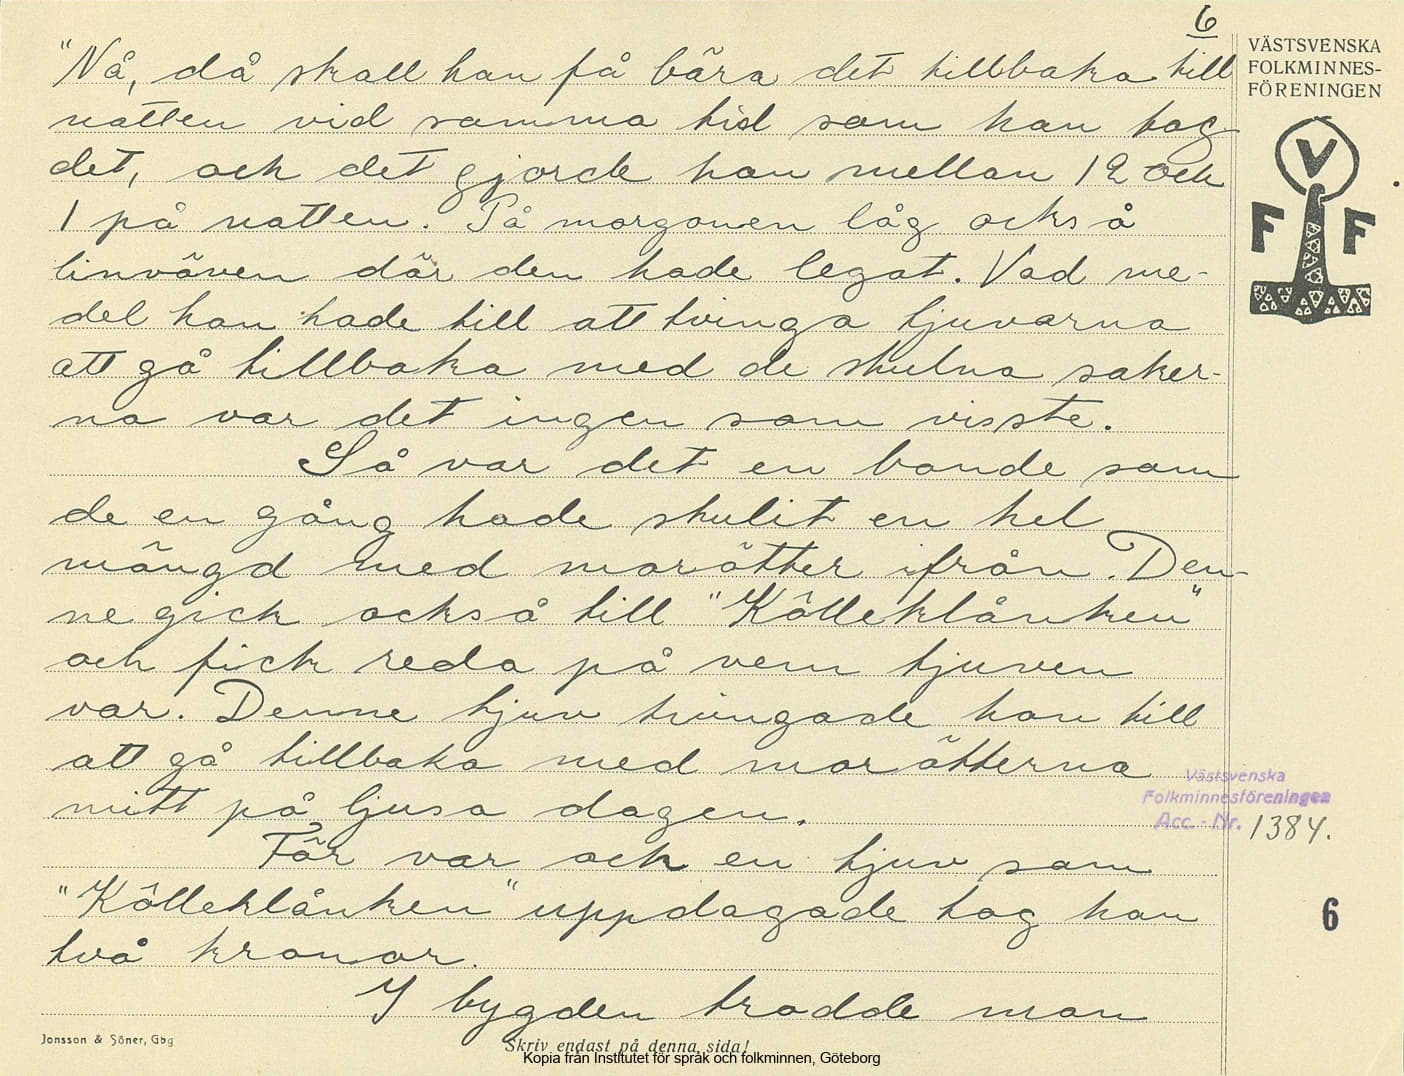 6
VÄSTSVENSKA
FOLKMINNES-
FÖRENINGEN
"Nå, då skall han få bära det tillbaka till
natten vid samma tid som han tog
det, och det gjorde han mellan 12 och
1 på natten. På morgonen låg också
linväven där den hade legat. Vad me-
del han hade till att tvinga tjuvarna
att gå tillbaka med de stulna saker-
na var det ingen som visste.
Så var det en bonde som
de en gång hade stulit en hel
mängd med morötter ifrån. Den-
ne gick också till "Kölleklånken"
och fick reda på vem tjuven
var. Denne tjuv tvingade han till
att gå tillbaka med morötterna
mitt på ljusa dagen.
För var och en tjuv som
"Kölleklånken" uppdagade tog han
två kronor.
I bygden trodde man
V
F F
Västsvenska
Folkminnesföreningen
Acc. - Nr. 1384.
6
Jonsson & Söner, Gbg
Skriv endast på denna sida!
Kopia från Institutet för språk och folkminnen, Göteborg